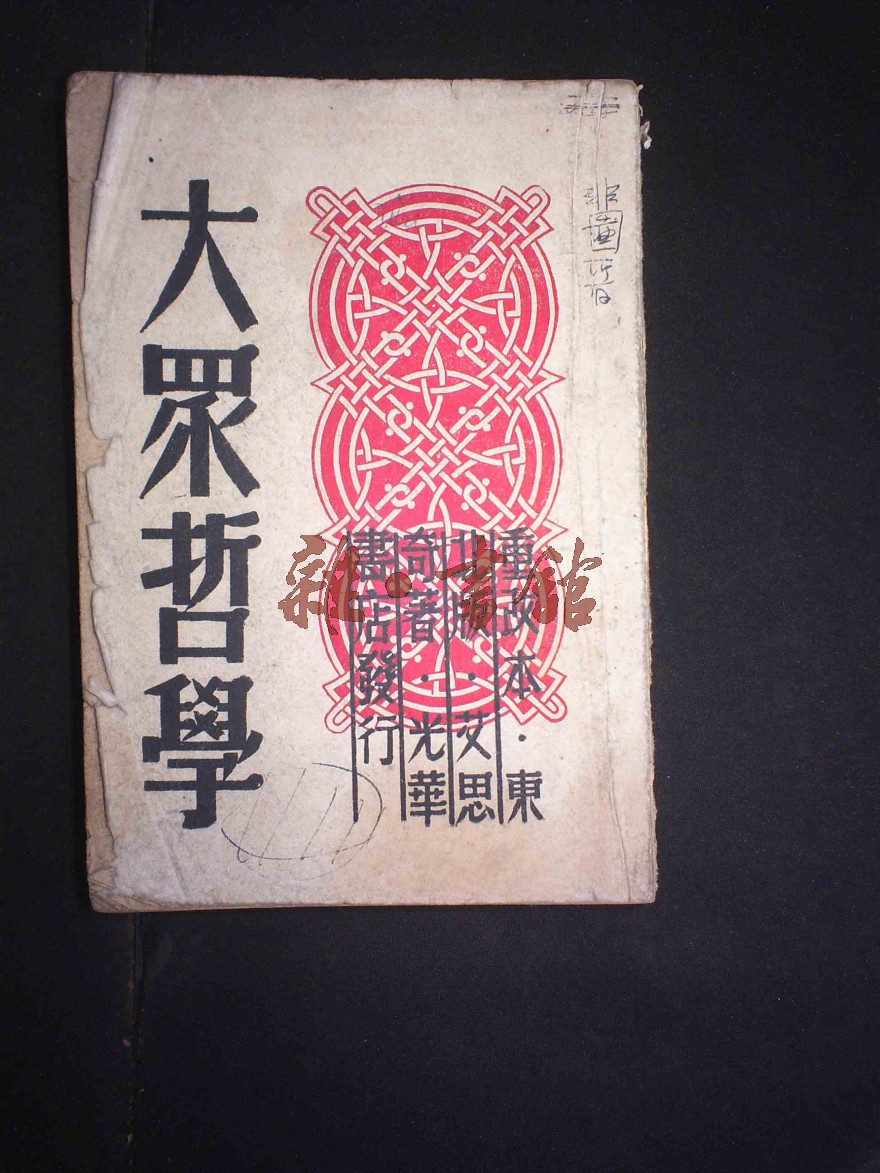 大眾哲學
重改本·東
北版·艾思
奇著·光華
書店發行
雜·書館